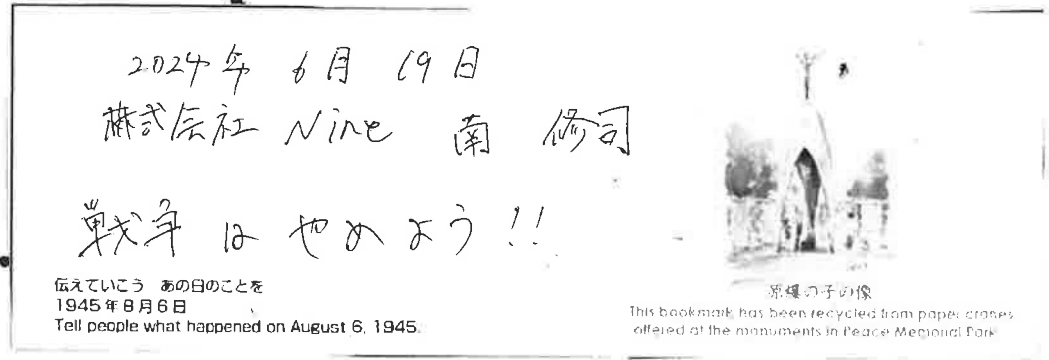 2024年 6月 19日
株式会社 Nine 南 修司
戦争はやめよう!!
伝えていこう あの日のことを
1945年8月6日
Tell people what happened on August 6, 1945.
原爆の子の像
This bookmark has been recycled from paper cranes
offered at the monuments in Peace Memorial Park